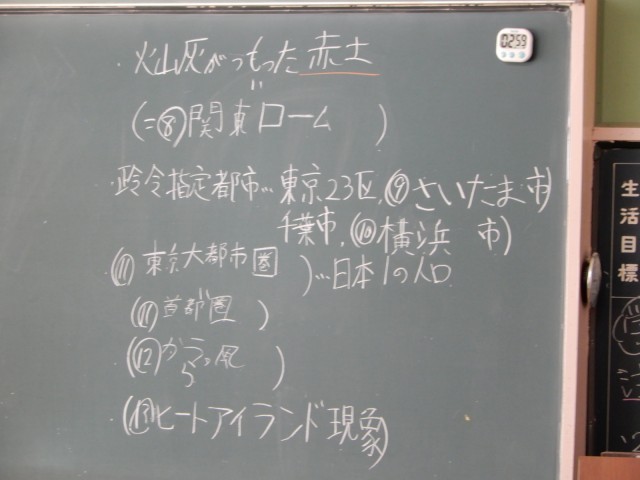 ・火山灰がつもった赤土
(=⑧関東ローム)
・政令指定都市…東京23区,⑨さいたま市)
千葉市,(⑩横浜市)
(⑪東京大都市圏)…日本1の人口
(⑪首都圏)
(⑫からっ風)
・(⑬ヒートアイランド現象)
02:59
生活目標